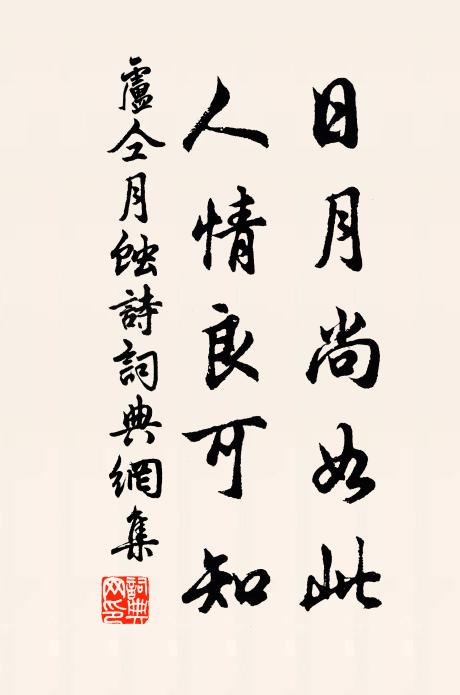 日月尚如此
人情良可知
盧仝月蝕詩詞典網集
詞典網印